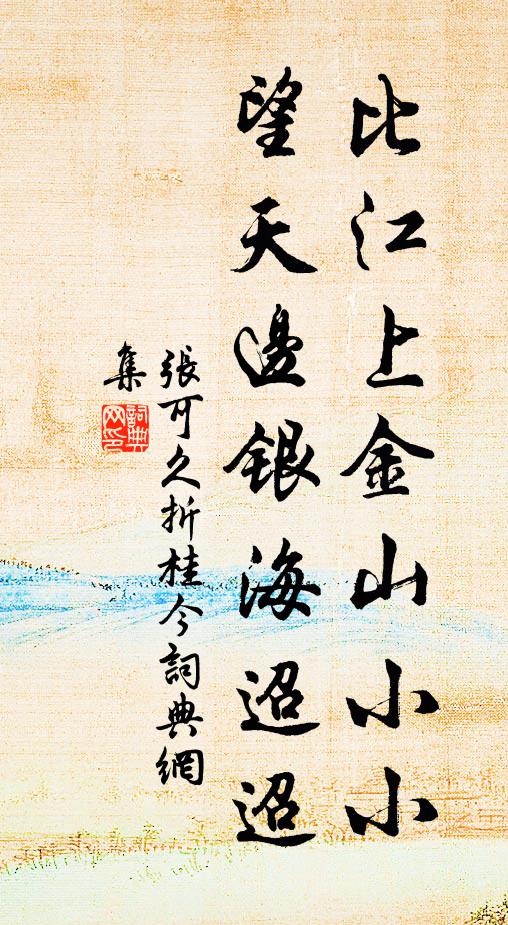 比江上金山小小
望天邊銀海迢迢
張可久折桂令詞典網
集
詞典網印